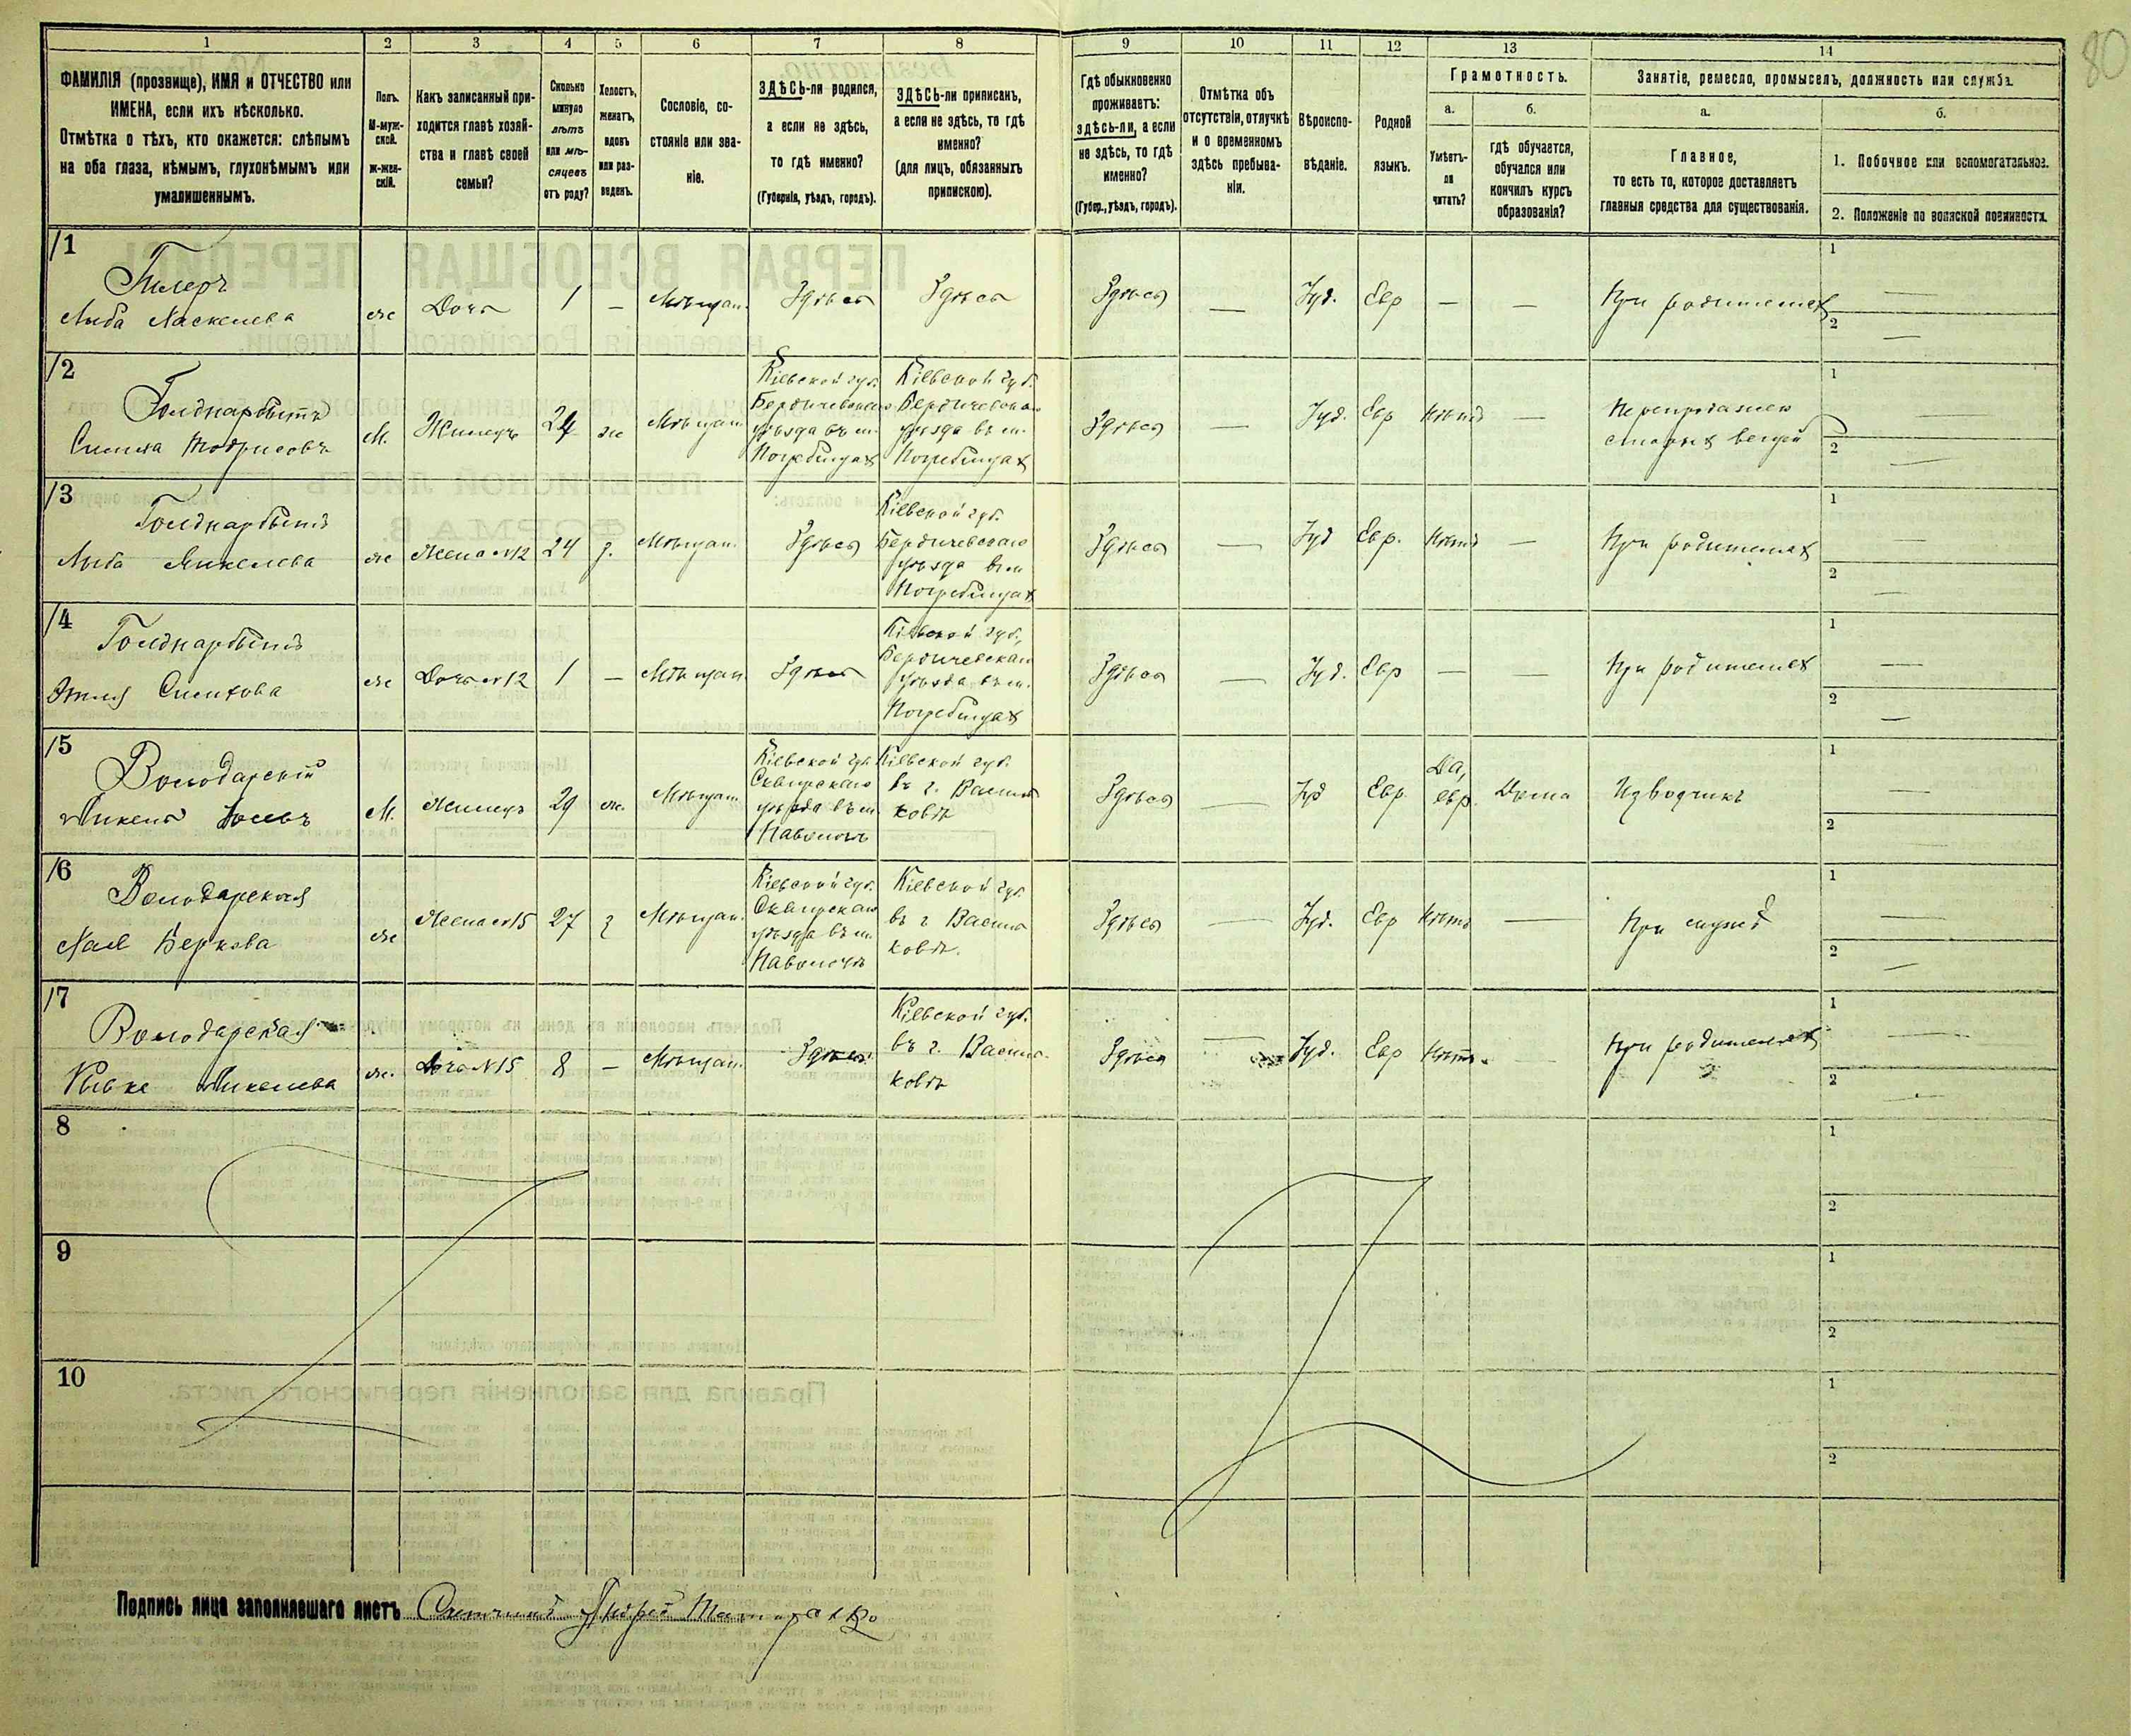 80
1 2 3 4 5 6 7 8 9 10 11 12 13 14
ФАМИЛІЯ (прозвище), ИМЯ и ОТЧЕСТВО или
ИМЕНА, если ихъ нѣсколько.
Отмѣтка о тѣхъ, кто окажется: слѣпымъ
на оба глаза, нѣмымъ, глухонѣмымъ или
умалишеннымъ.
Полъ.
М-муж-
ской.
ж-жен-
скій.
Какъ записанный при-
ходится главѣ хозяй-
ства и главѣ своей
семьи?
Сколько
минуло
лѣтъ
или мѣ-
сяцевъ
отъ роду?
Холостъ,
женатъ,
вдовъ
или раз-
веденъ.
Сословіе, со-
стояніе или зва-
ніе.
ЗДѢСЬ-ли родился,
а если не здѣсь,
то гдѣ именно?
(Губернія, уѣздъ, городъ).
ЗДѢСЬ-ли приписанъ,
а если не здѣсь, то гдѣ
именно?
(для лицъ, обязанныхъ
припискою).
Гдѣ обыкновенно
проживаетъ:
здѣсь-ли, а если
не здѣсь, то гдѣ
именно?
(Губер., уѣздъ, городъ).
Отмѣтка объ
отсутствіи, отлучкѣ
и о временномъ
здѣсь пребыва-
ніи.
Вѣроиспо-
вѣданіе.
Родной
языкъ.
Грамотность.
а.
Умѣетъ-
ли
читать?
б.
гдѣ обучается,
обучался или
кончилъ курсъ
образованія?
Занятіе, ремесло, промыселъ, должность или служба.
а.
Главное,
то есть то, которое доставляетъ
главныя средства для существованія.
б.
1. Побочное или вспомогательное.
2. Положеніе по воинской повинности.
11
Лыба
Дочь 1 — Мѣщан. Здѣсь Здѣсь Здѣсь — Іуд. Евр — — При родителях
1 —
2 —
12
Мѣщан
М. Жилец 24 ж
Кіевской губ.
Бердичевскаго
уѣзда въ м.
Погребищах
Кіевской губ.
Бердичевскаго
уѣзда въ м.
Погребищах
Здѣсь — Іуд. Евр Нѣтъ —
старых вещей
1 —
2 —
13
Лыба Янкелева
Жена №12 24 з. Мѣщан. Здѣсь
Кіевской губ.
Бердичевскаго
уѣзда в м
Погребищах
Здѣсь — Іуд Евр. Нѣтъ — При родителях
1 —
2 —
14
Дочь №12 1 — Мѣщан Здѣсь
Кіевской губ.
Бердичевскаго
уѣзда въ м.
Погребищах
Здѣсь — Іуд. Евр — — При родителях
1 —
2 —
15
Володарскій
Янкель
М. Жилец 29 ж. Мѣщан
Кіевской губ.
Сквирскаго
уѣзда въ м.
Паволочь
Кіевской губ.
въ г. Василь
ковѣ
Здѣсь — Іуд Евр. Да, евр. Дома Извозчикъ
1 —
2
16
Володарская
Беркова
Жена №15 27 з Мѣщан.
Кіевской губ.
Сквирскаго
уѣзда въ м.
Паволочь
Кіевской губ.
въ г Василь
ковѣ.
Здѣсь — Іуд. Евр Нѣтъ — При мужѣ
1 —
2 —
17
Володарская
Ривка Янкелева
Дочь №15 8 — Мѣщан. Здѣсь
Кіевской губ.
въ г. Василь-
ковѣ
Здѣсь — Іуд. Евр Нѣтъ. При родителях
1 —
2 —
8
1
2
9
1
2
10
1
2
Подпись лица заполнявшаго листъ Счетчикъ Андрей